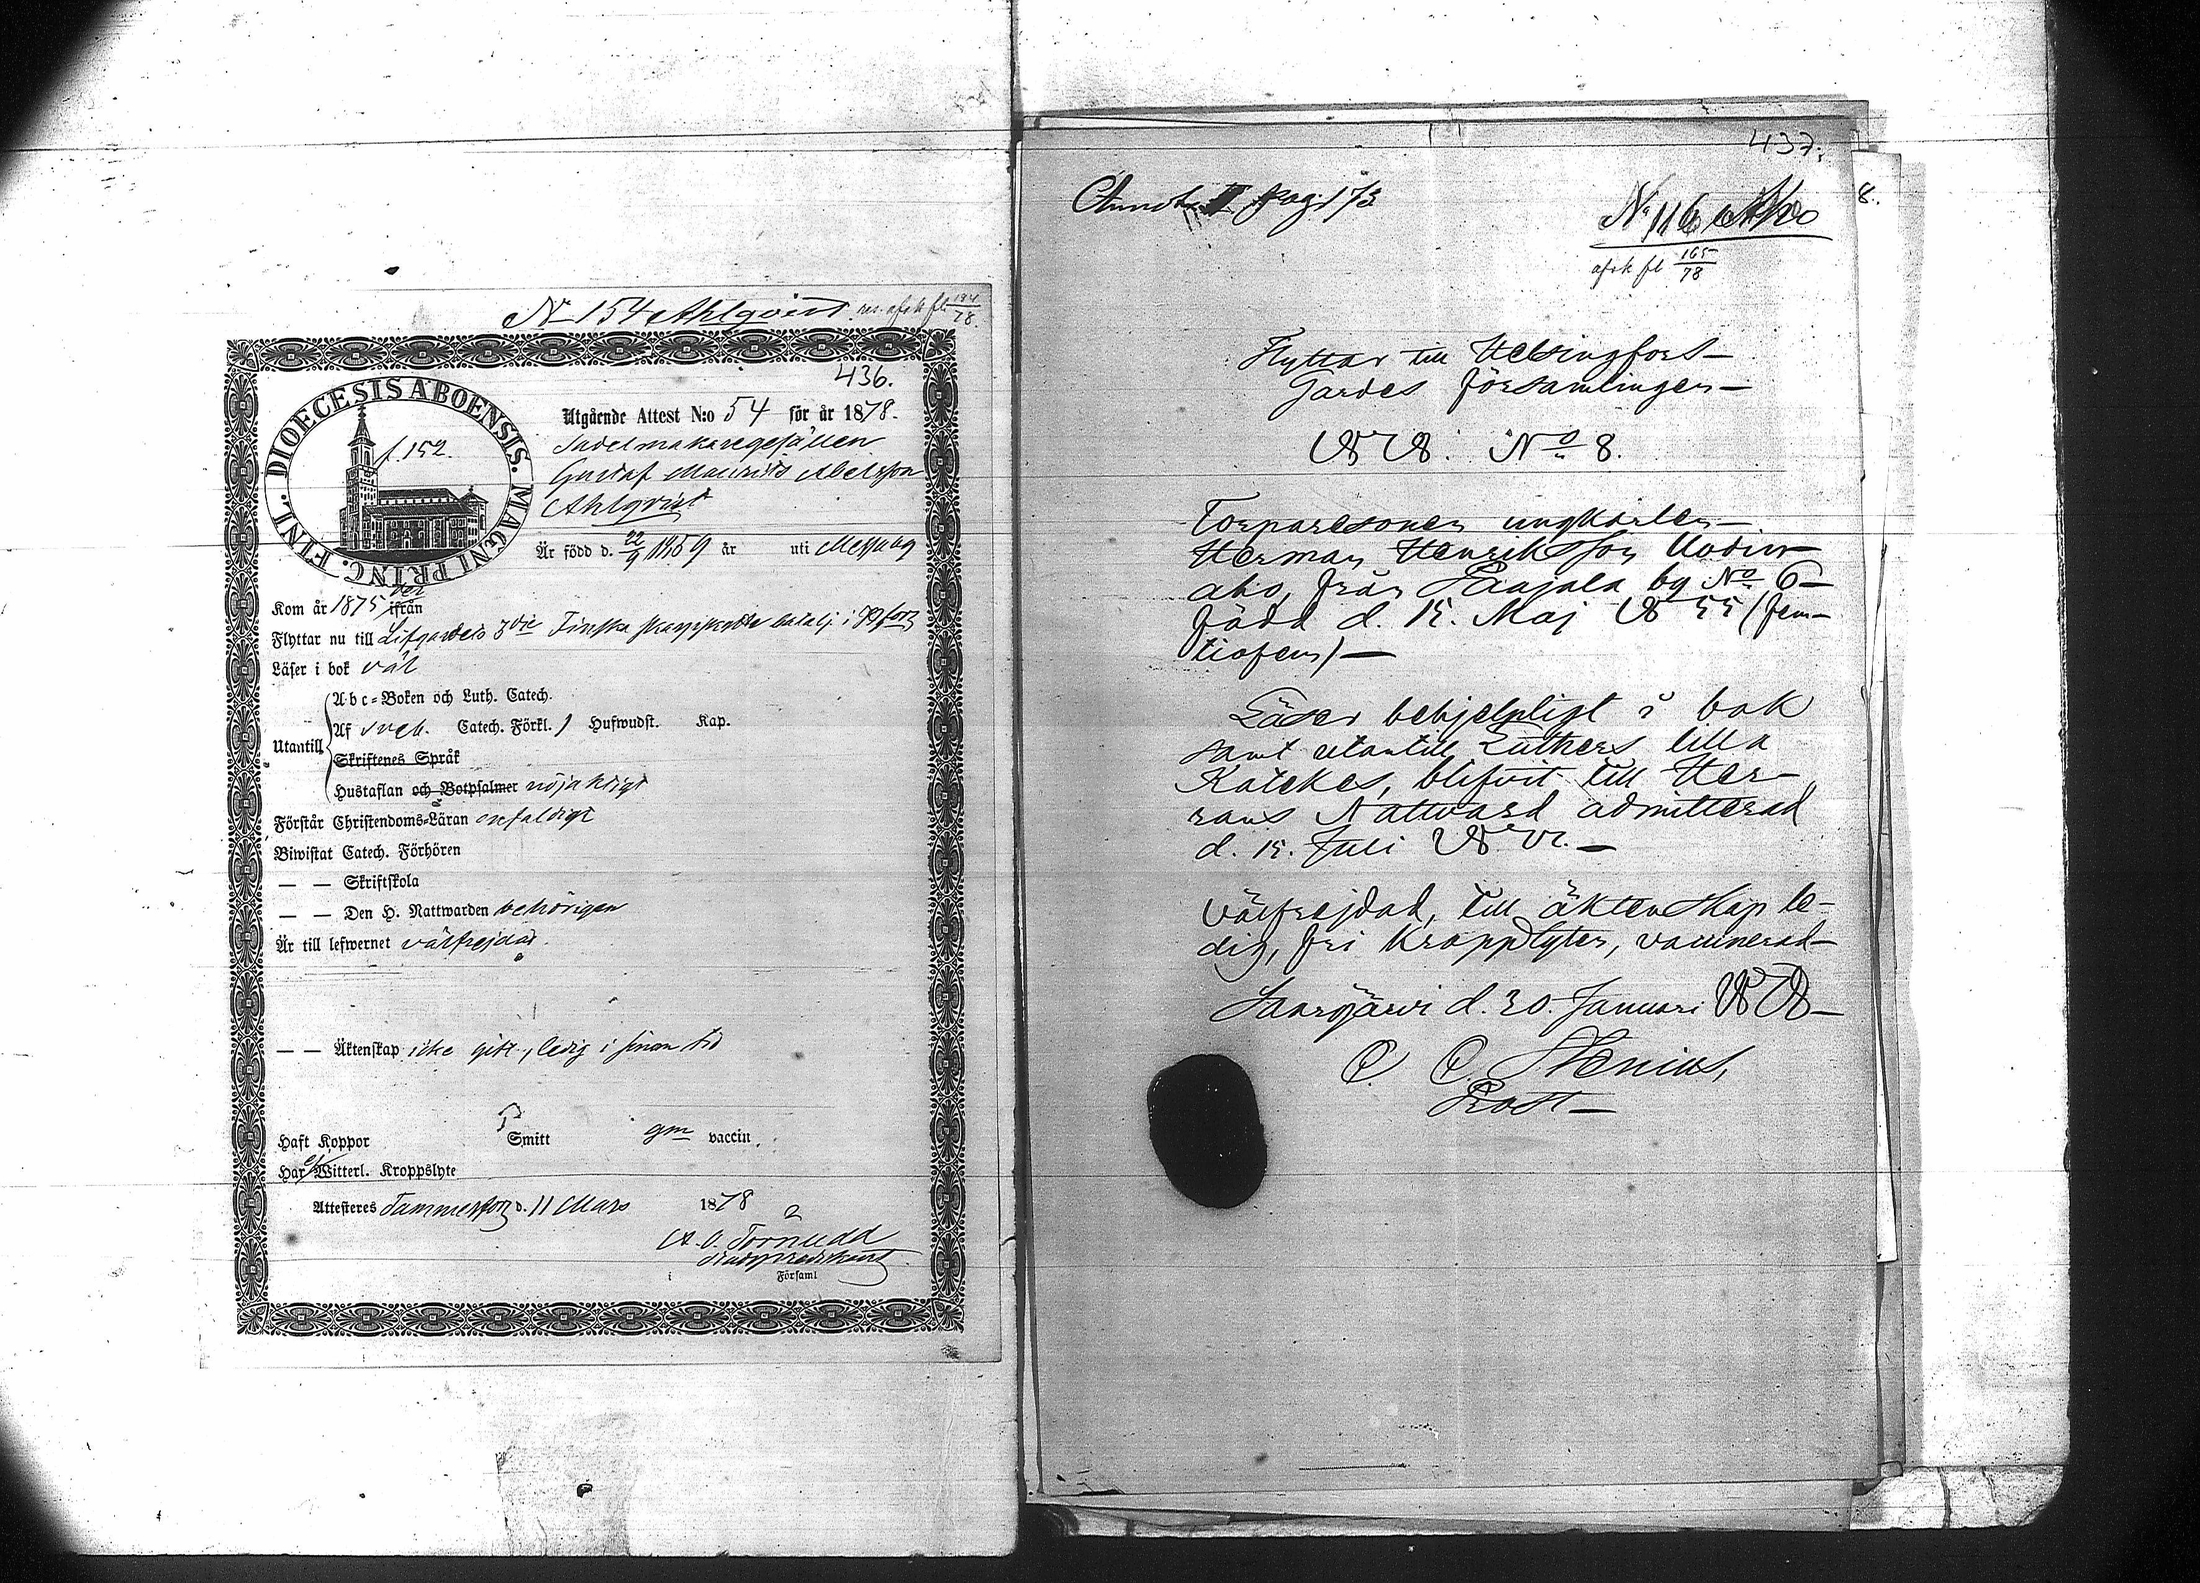 N 154 Ahlqvist afsk fl 194/78.
436.
DIOECESIS ABOENSIS. MAGNI PRINC. FINL.
f. 152.
Utgående Attest N:o 54 för år 1878.
Sadelmakaregesällen
Gustaf Mauritz Abelsson
Ahlqvist
Är född d. 22/9 1859 år uti Messuby
Kom år 1875 ifrån
Flyttar nu till Lifgardets 3die Finska skarpskytte batalj. i Hfors
Läser i bok väl
Abc-Boken och Luth. Catech.
Af sveb. Catech. Förkl. Hufwudst. Kap.
Utantill
Skriftenes Språk
Hustaflan och Botpsalmer nöjaktigt
Förstår Christendoms-Läran enfaldigt
Biwistat Catech. Förhören
— — Skriftskola
— — Den H. Nattwarden behörigen
Är till lefwernet välfrejdad.
— — Äktenskap icke gift, ledig i sinom tid
Haft Koppor Smitt gm vaccin.
Har ej Witterl. Kroppslyte
Attesteras Tammerfors d. 11 Mars 1878
A. O. Törnudd
Stadspredikant
i Församl
437.
Annot. II pag. 173
N. 116 Aho
8.
afsk fl 165/78
Flyttar till Helsingfors
Gardes församlingen—
No 8.
Torparesonen ungkarlen—
Herman Henriksson Uodin
aho, från Saajala by No 6—
född d. 15. Maj 55 (fem-
tiofem)—
Läser behjelpligt i bok
samt utantill Luthers lilla
Katekes, blifvit till Her-
rans Nattvard admitterad
d. 15. Juli
Välfrejdad, till äktenskap le-
dig, fri kroppslyten, vaccinerad—
Saarijärvi d. 30. Januari
O. O. Stenius,
Prost—